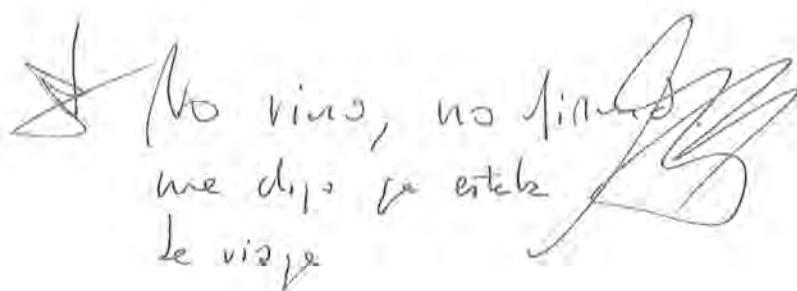 No vino, no firmó
me dijo qe estaba
de viaje